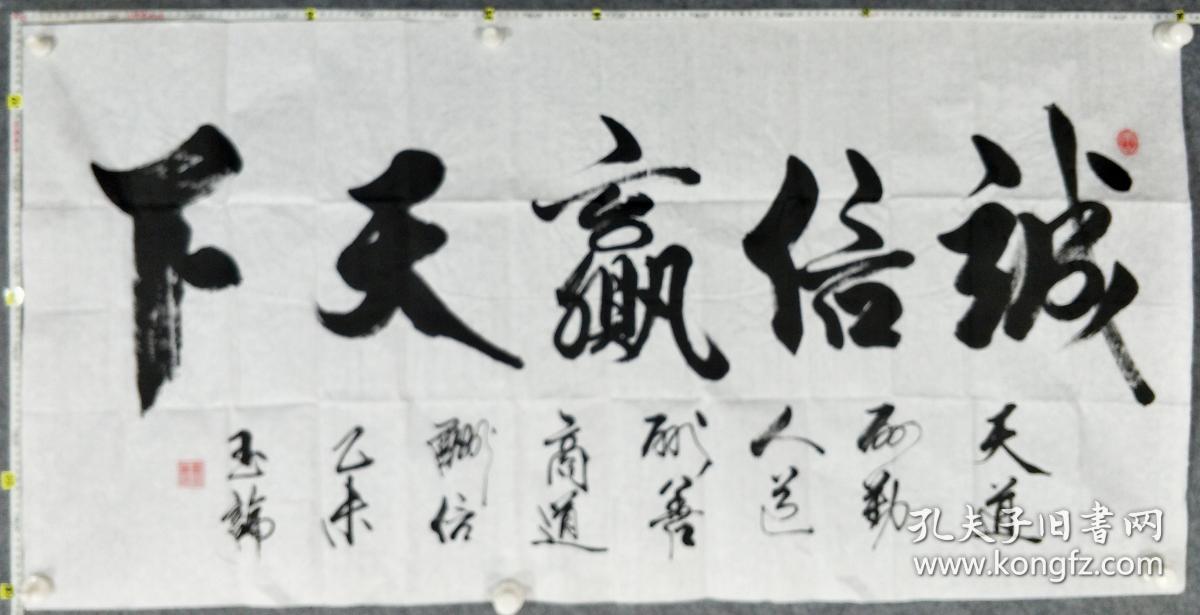 誠信贏天下
天道
酬勤
人道
酬善
商道
酬信
乙未
玉論
孔夫子旧书网
www.kongfz.com